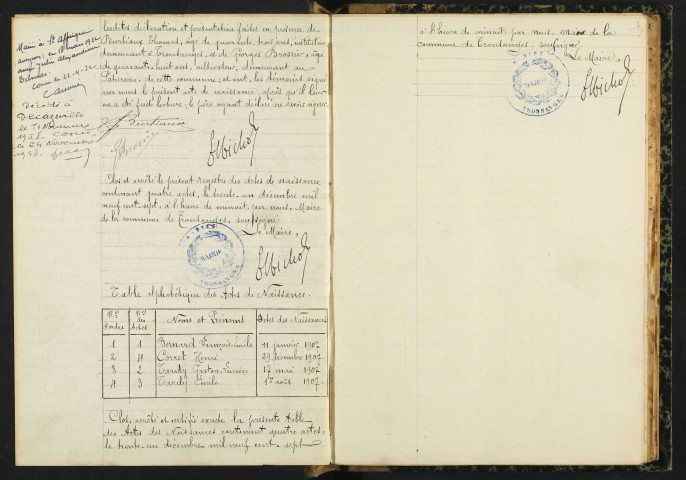 Marié à St Affrique
Aveyron, en mars 1932
avec Julie Alexandrine
Delmas
Décédé à
Decazeville
le 13 Novembre
1958.
le 24 Novembre
1958.
lesdites déclaration et présentation faites en présence de
âgé de quarante trois ans, instituteur
demeurant à et de Georges Brossier, âgé
de quarante huit ans, cultivateur, demeurant au
de cette commune; et ont, les témoins signé
avec nous le présent acte de naissance, après qu'il leur
en a été fait lecture; le père ayant déclaré ne savoir signer.
Clos et arrêté le présent registre des actes de naissance
contenant quatre actes, le trente-un décembre mil
neuf cent sept, à l'heure de minuit, par nous, Maire
de la commune de soussigné.
Le Maire,
MAIRIE
Table alphabétique des Actes de Naissance.
Nos d'ordre Nos des Actes Noms et Prénoms Dates des Naissances
1 1 Bernard François-Emile 11 janvier 1907
2 4 Corret Henri 29 décembre 1907
3 2 Tardy Gaston-Lucien 17 mai 1907
4 3 Tardy Emile 1er août 1907
Clos, arrêté et certifié exacte la présente table
des Actes des Naissances contenant quatre actes,
le trente-un décembre mil neuf cent sept
à l'heure de minuit par nous, Maire de la
commune de soussigné.
Le Maire,
MAIRIE